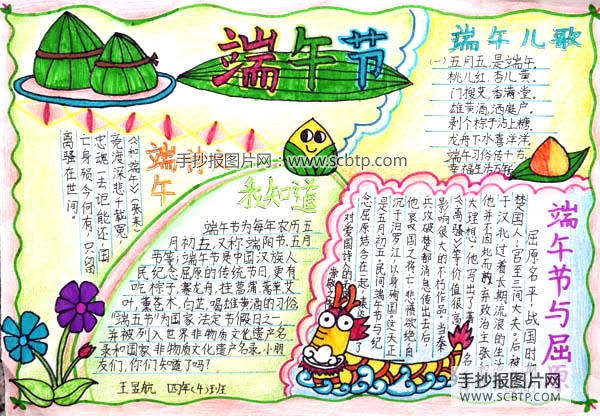 端午节
端午儿歌
(一)五月五,是端午,
桃儿红,杏儿黄。
门搜艾,香满堂。
雄黄酒,洒庭户。
剥个棕子沾上糖,
龙舟下水喜洋洋。
端午习俗传十古,
幸福生活万年
端午
《和端午》(张耒)
竞渡深悲千载冤,
忠魂一去讵能还。国
亡身殒今何有,只留
离骚在世间。
手抄报图片网:www.scbtp.com
我知道
端午节为每年农历五
月初五,又称端阳节、五月
节等;端午节是中国汉族人
民纪念屈原的传统节日,更有
吃粽子,赛龙舟,挂菖蒲、蒿草、艾
叶,薰苍术、白芷,喝雄黄酒的习俗
"端五节"为国家法定节假日之一
并被列入世界非物质文化遗产名
录和国家非物质文化遗产名录,小朋
友们,你们知道了吗?
王昱航 四年(4)班
端午节与屈原
屈原名平,战国时期
楚国人,官至三闾大夫。后被
于汉北过着长期流浪的生活
他并不因此而放弃政治主张和
大理想,他写出了著名
《离骚》等价值很高
影响很大的不朽作品,当秦
兵攻破楚都消息传出去后,
他哀国之将亡悲愤欲绝自
沉于汨罗江,以身殉国这天正
是五月初五,民间端午节与纪
念屈原结合在一起,表达了
对爱国诗人的
手抄报图片网
WWW.SCBTP.COM